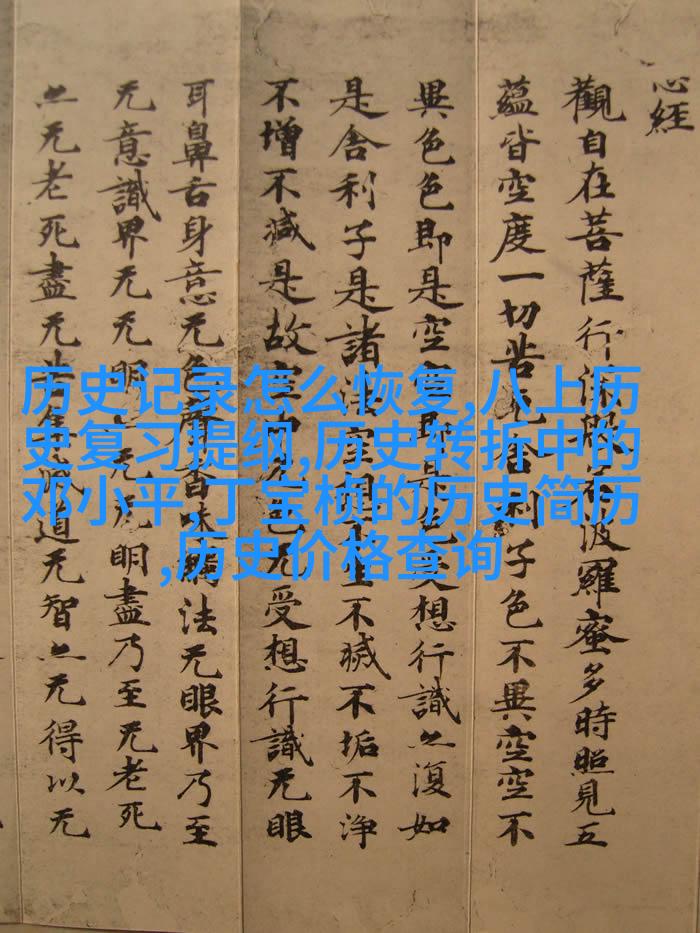 心經
觀自在菩薩行深般若波羅蜜多時照見五
蘊皆空度一切苦厄舍利子色不異空空不
異色色即是空空即是色受想行識亦復如
是舍利子是諸法空相不生不滅不垢不淨
不增不減是故空中无色无受想行識无眼
耳鼻舌身意无色聲香味觸法无眼界乃至
无意識界无无明亦无无明盡乃至无老死
亦无老死盡无苦集滅道无智亦无得以无
历史记录怎么恢复,八上历
史复习提纲,历史转折中的
邓小平,丁宝桢的历史简历
,历史价格查询